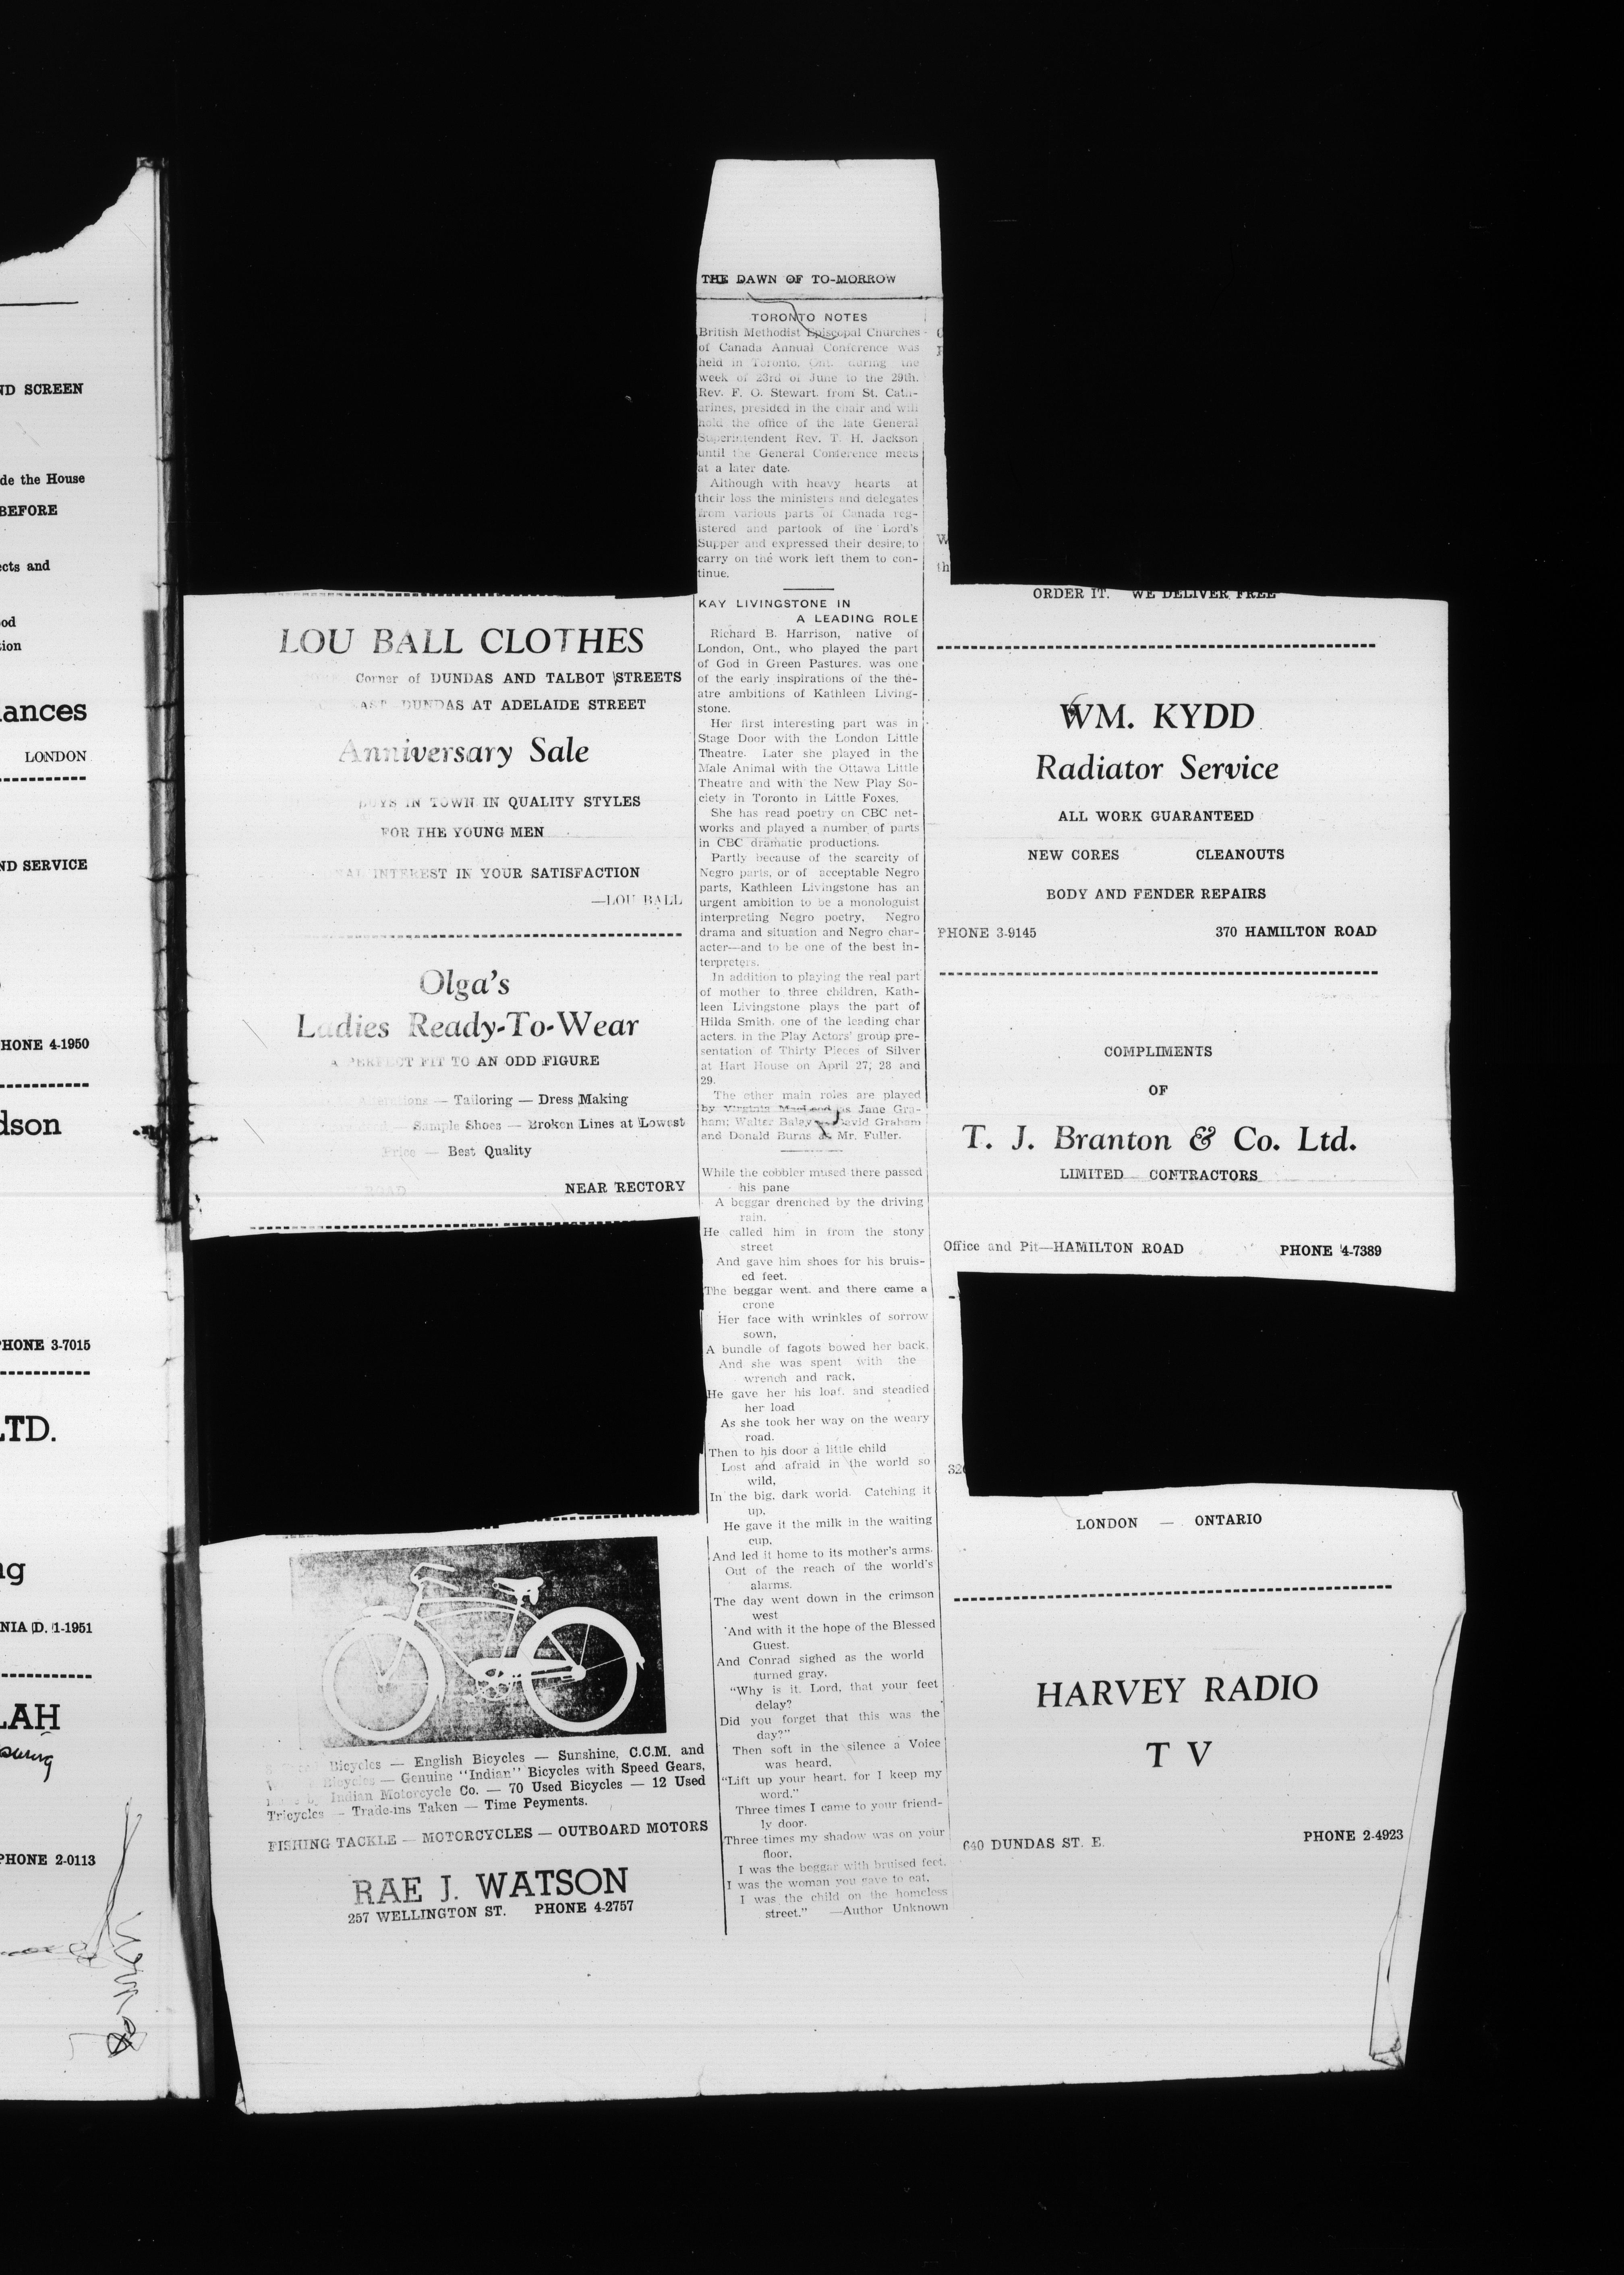 ND SCREEN
de the House
BEFORE
ects and
od
tion
ances
LONDON
ND SERVICE
HONE 4-1950
dson
PHONE 3-7015
LTD.
ng
NIA D. 1-1951
LAH
PHONE 2-0113
THE DAWN OF TO-MORROW
LOU BALL CLOTHES
Corner of DUNDAS AND TALBOT STREETS
DUNDAS AT ADELAIDE STREET
Anniversary Sale
BUYS IN TOWN IN QUALITY STYLES
FOR THE YOUNG MEN
INTEREST IN YOUR SATISFACTION
—LOU BALL
Olga's
Ladies Ready-To-Wear
A PERFECT FIT TO AN ODD FIGURE
Alterations — Tailoring — Dress Making
— Sample Shoes — Broken Lines at Lowest
Price — Best Quality
ROAD NEAR RECTORY
Bicycles — English Bicycles — Sunshine, C.C.M. and
Bicycles — Genuine "Indian" Bicycles with Speed Gears,
Indian Motorcycle Co. — 70 Used Bicycles — 12 Used
Tricycles — Trade-ins Taken — Time Peyments.
FISHING TACKLE — MOTORCYCLES — OUTBOARD MOTORS
RAE J. WATSON
257 WELLINGTON ST. PHONE 4-2757
TORONTO NOTES
British Methodist Episcopal Churches
of Canada Annual Conference was
held in Toronto, Ont. during the
week of 23rd of June to the 29th.
Rev. F. O. Stewart. from St. Cath-
arines, presided in the chair and will
hold the office of the late General
Superintendent Rev. T. H. Jackson
until the General Conference meets
at a later date.
Although with heavy hearts at
their loss the ministers and delegates
from various parts of Canada reg-
istered and partook of the Lord's
Supper and expressed their desire to
carry on the work left them to con-
tinue.
KAY LIVINGSTONE IN
A LEADING ROLE
Richard B. Harrison, native of
London, Ont., who played the part
of God in Green Pastures. was one
of the early inspirations of the the-
atre ambitions of Kathleen Living-
stone.
Her first interesting part was in
Stage Door with the London Little
Theatre. Later she played in the
Male Animal with the Ottawa Little
Theatre and with the New Play So-
ciety in Toronto in Little Foxes.
She has read poetry on CBC net-
works and played a number of parts
in CBC dramatic productions.
Partly because of the scarcity of
Negro parts, or of acceptable Negro
parts, Kathleen Livingstone has an
urgent ambition to be a monologuist
interpreting Negro poetry, Negro
drama and situation and Negro char-
acter—and to be one of the best in-
terpreters.
In addition to playing the real part
of mother to three children, Kath-
leen Livingstone plays the part of
Hilda Smith. one of the leading char
acters. in the Play Actors' group pre-
sentation of Thirty Pieces of Silver
at Hart House on April 27, 28 and
29.
The other main roles are played
by Virginia MacLeod as Jane Gra-
ham; Walter Baley as David Graham
and Donald Burns as Mr. Fuller.
While the cobbler mused there passed
his pane
A beggar drenched by the driving
rain.
He called him in from the stony
street
And gave him shoes for his bruis-
ed feet.
The beggar went. and there came a
crone
Her face with wrinkles of sorrow
sown,
A bundle of fagots bowed her back.
And she was spent with the
wrench and rack,
He gave her his loaf. and steadied
her load
As she took her way on the weary
road.
Then to his door a little child
Lost and afraid in the world so
wild,
In the big. dark world. Catching it
up,
He gave it the milk in the waiting
cup,
And led it home to its mother's arms.
Out of the reach of the world's
alarms.
The day went down in the crimson
west
And with it the hope of the Blessed
Guest.
And Conrad sighed as the world
turned gray.
"Why is it. Lord, that your feet
delay?
Did you forget that this was the
day?"
Then soft in the silence a Voice
was heard,
"Lift up your heart. for I keep my
word."
Three times I came to your friend-
ly door.
Three times my shadow was on your
floor.
I was the beggar with bruised feet.
I was the woman you gave to eat.
I was the child on the homeless
street." —Author Unknown
ORDER IT. WE DELIVER FREE
WM. KYDD
Radiator Service
ALL WORK GUARANTEED
NEW CORES CLEANOUTS
BODY AND FENDER REPAIRS
PHONE 3-9145 370 HAMILTON ROAD
COMPLIMENTS
OF
T. J. Branton & Co. Ltd.
LIMITED CONTRACTORS
Office and Pit—HAMILTON ROAD PHONE 4-7389
LONDON — ONTARIO
HARVEY RADIO
T V
640 DUNDAS ST. E. PHONE 2-4923